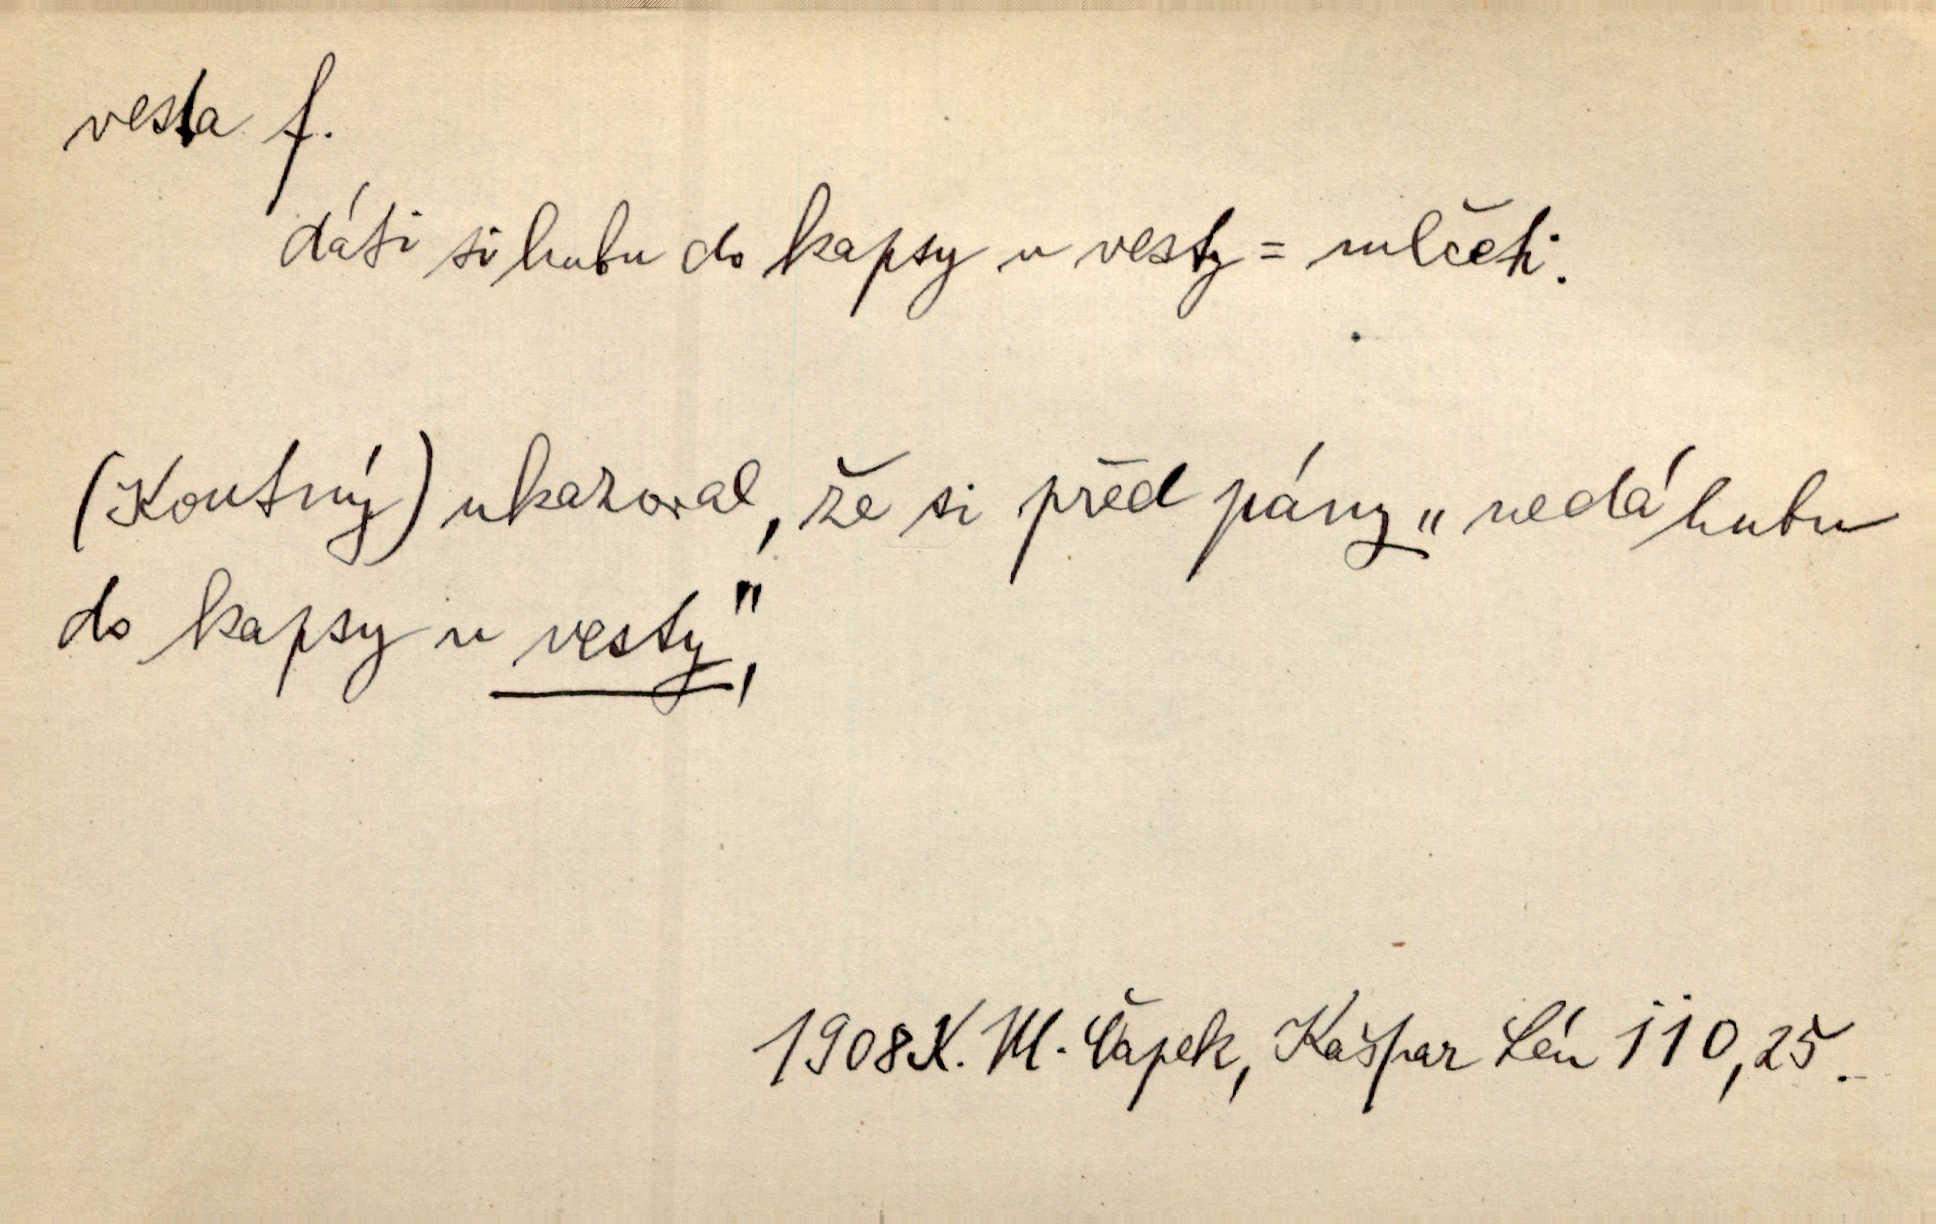 vesta f.
dáti si hubu do kapsy u vesty = mlčeti.
(Koutný) ukazoval, že si před pány „nedá hubu
do kapsy u vesty",
1908 K. M. Čapek, Kašpar Lén 110,25.